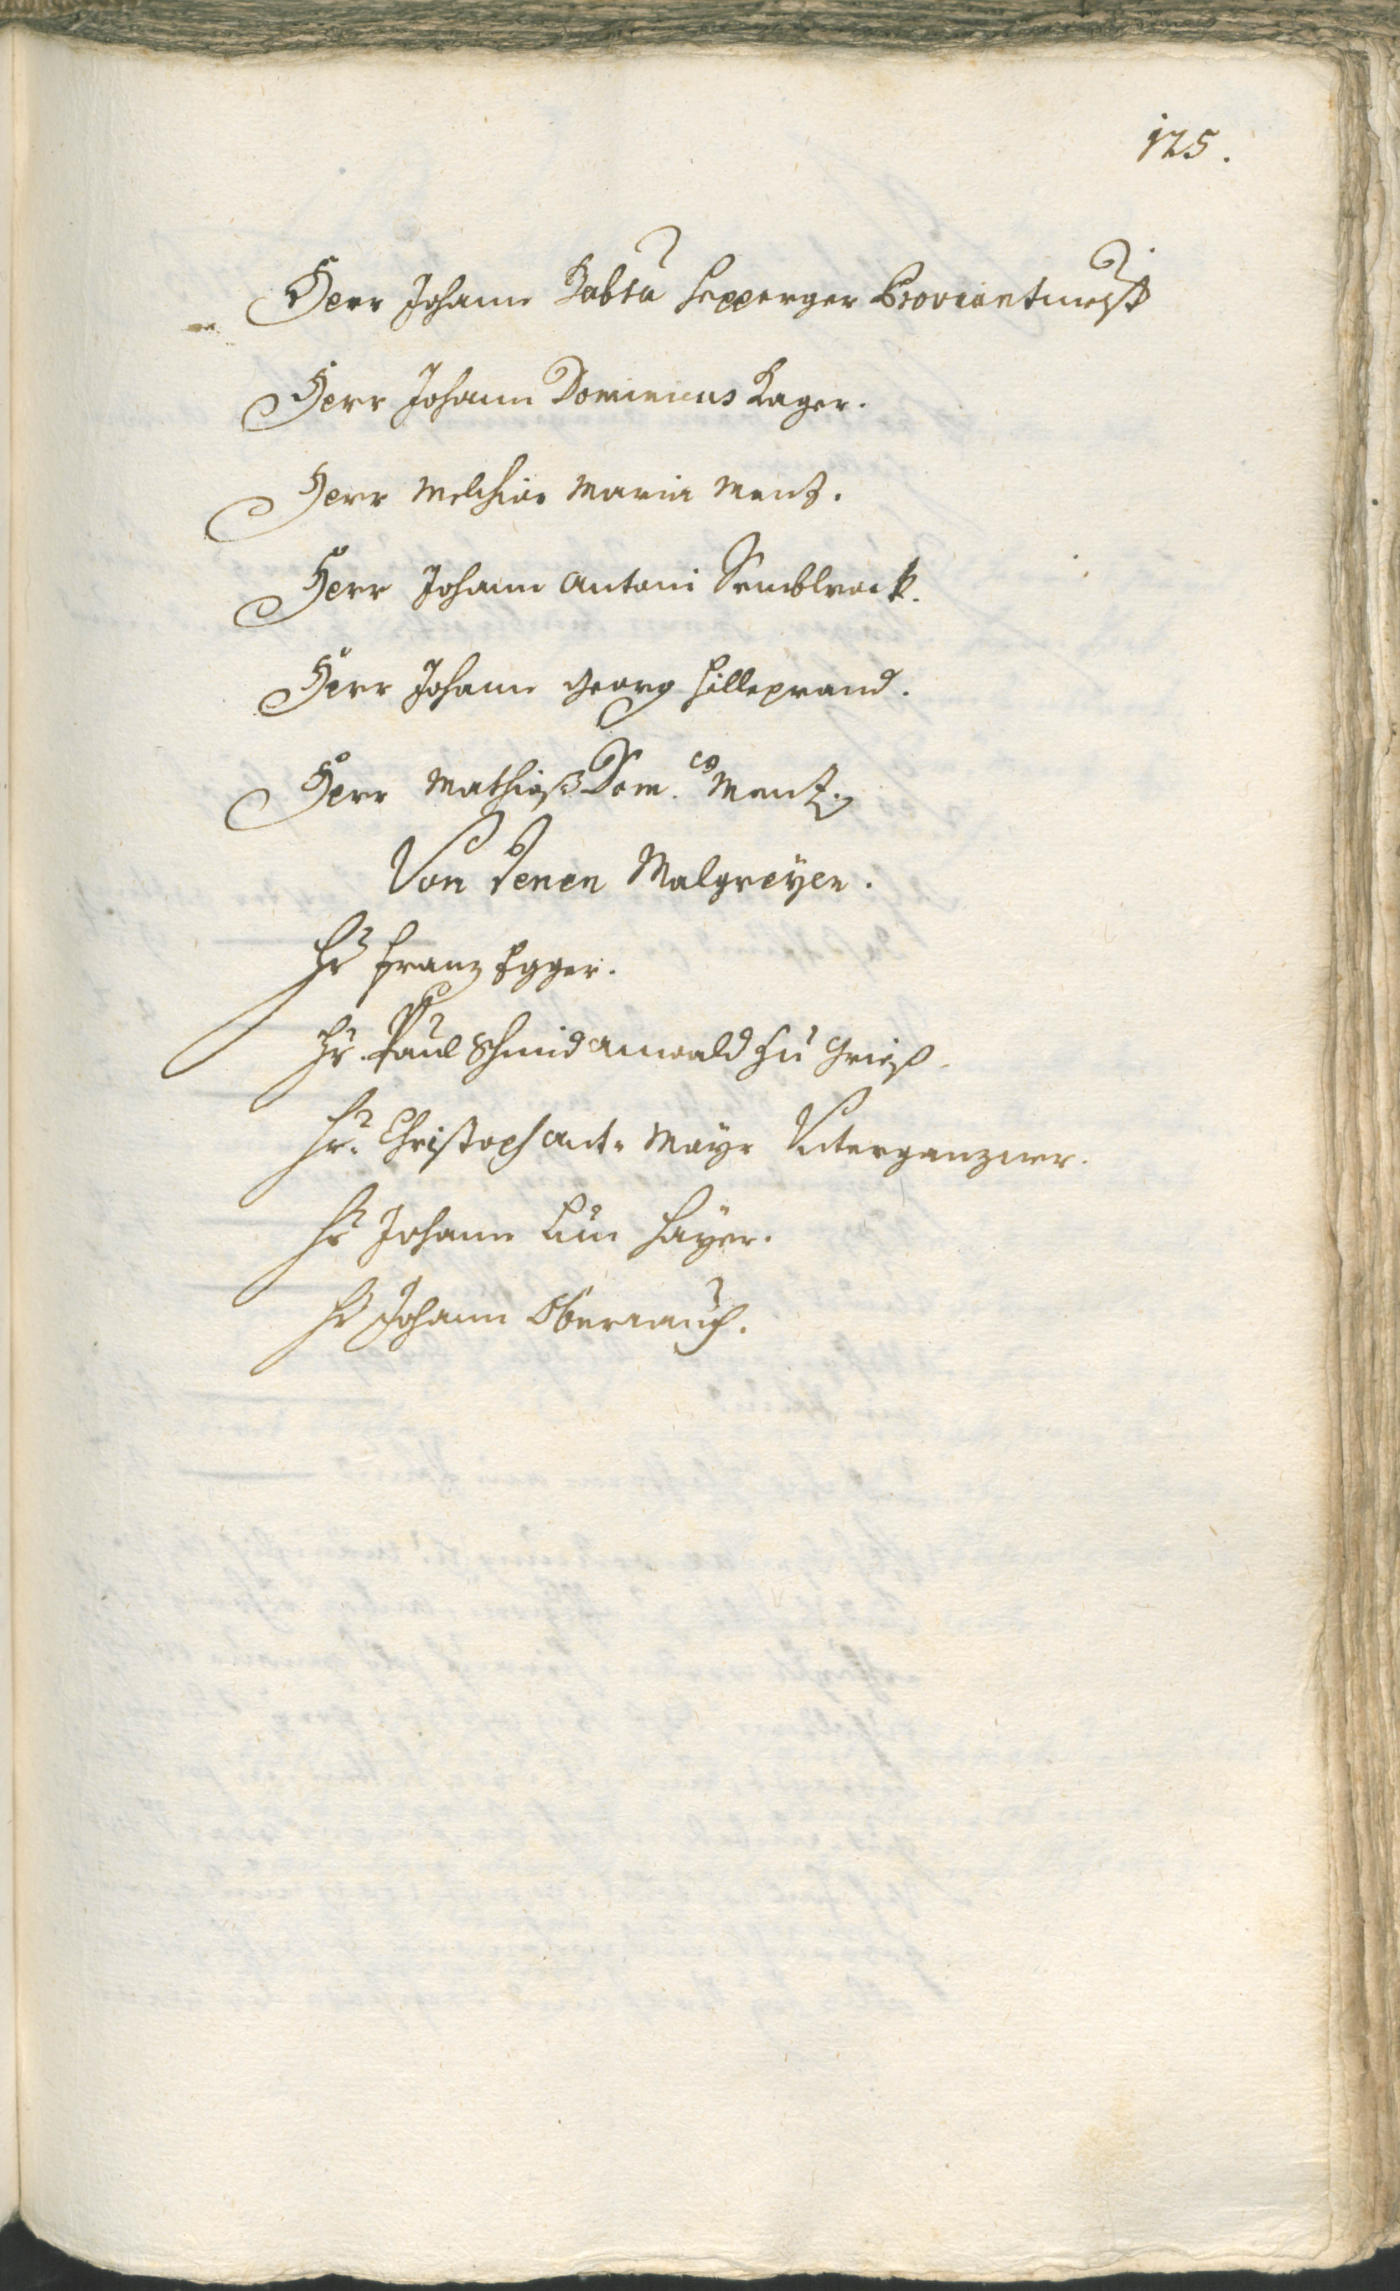 125.
Herr Johann Babta Hepperger Proviantmeistr
Herr Johann Dominicus Kager.
Herr Melchior Maria Menz.
Herr Johann Antoni Semblrock.
Herr Johann Georg Hilleprand.
Herr Mathiaß Dom.co Menz.
Von denen Malgreÿen.
Hr Franz Egger.
Hr. Paul Schmid Anwald zu Grieß.
Hr. Christoph Ant. Mayr Unterganzner.
Hr Johann Hayer.
Hr Johann Oberrauch.